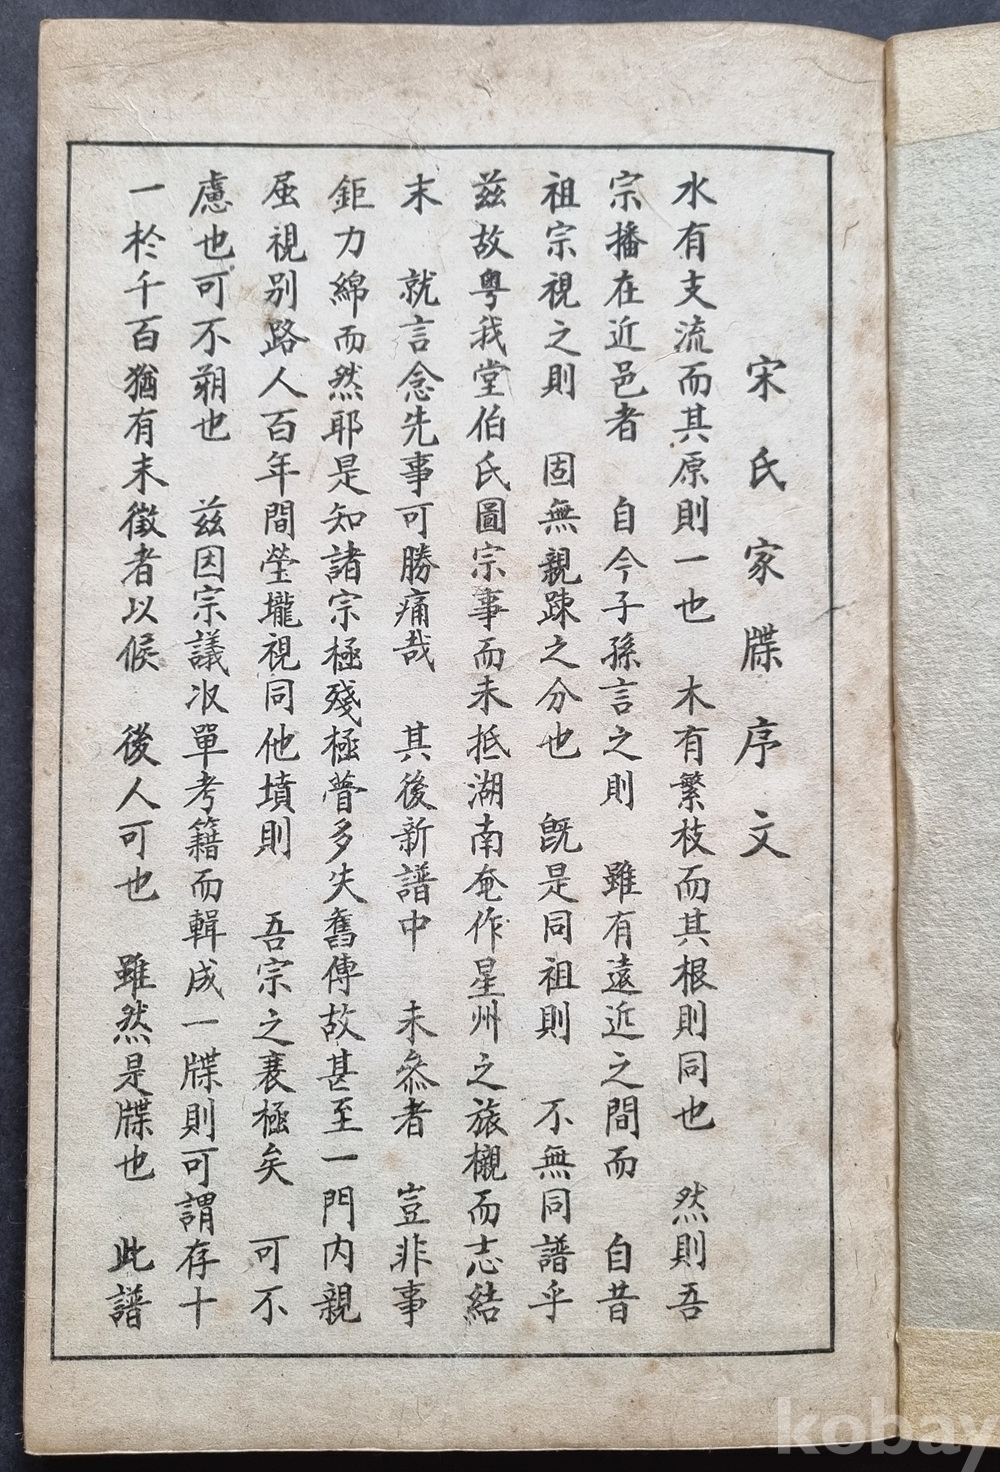 宋氏家牒序文
水有支流而其原則一也 木有繁枝而其根則同也 然則吾
宗播在近邑者 自今子孫言之則 雖有遠近之間而 自昔
祖宗視之則 固無親踈之分也 旣是同祖則 不無同譜乎
兹故粤我堂伯氏圖宗事而未抵湖南奄作星州之旅櫬而志結
末 就言念先事可勝痛哉 其後新譜中 未叅者 豈非事
鉅力綿而然耶是知諸宗極殘極瞢多失舊傳故甚至一門內親
屈視别路人百年間塋壠視同他墳則 吾宗之衰極矣 可不
慮也可不 也 兹因宗議收單考籍而輯成一牒則可謂存十
一於千百猶有末徵者以候 後人可也 雖然是牒也 此譜
kobay